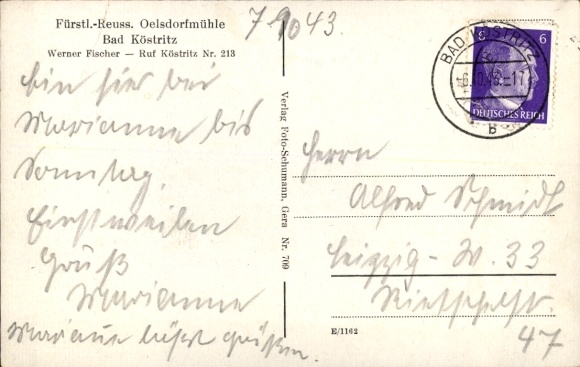 Fürstl.-Reuss. Oelsdorfmühle
Bad Köstritz
Werner Fischer — Ruf Köstritz Nr. 213
bin hier bei
Marianne bis
Sonntag.
Einstweilen
Gruß
Marianne
Mariane läßt grüßen.
Verlag Foto-Schumann, Gera Nr. 709
BAD KÖSTRITZ
b
6
6
DEUTSCHES REICH
Herrn
Alfred Schmidt
Leipzig - W. 33
Rietschelstr.
47
E/1162